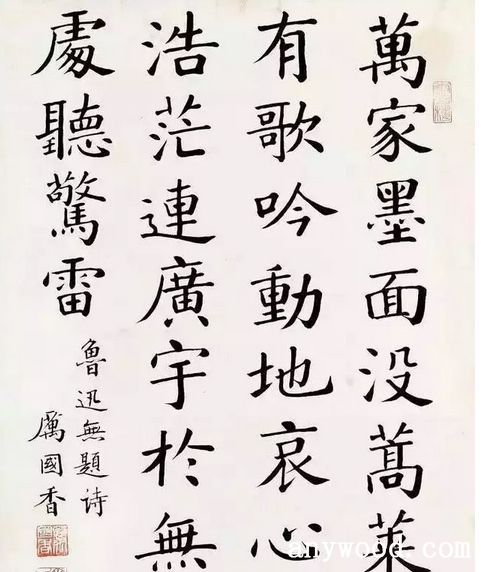 萬家墨面没蒿萊
有歌吟動地哀心
浩茫連廣宇於無
處聽驚雷
魯迅無題詩
厲國香
anywood.com